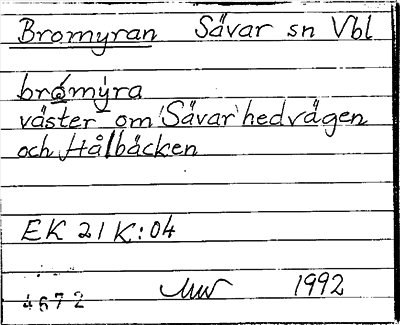 Bromyran Sävar sn Vbl
brómýra
väster om Sävar hedvägen
och Hålbäcken
EK 21 K:04
1992
4672